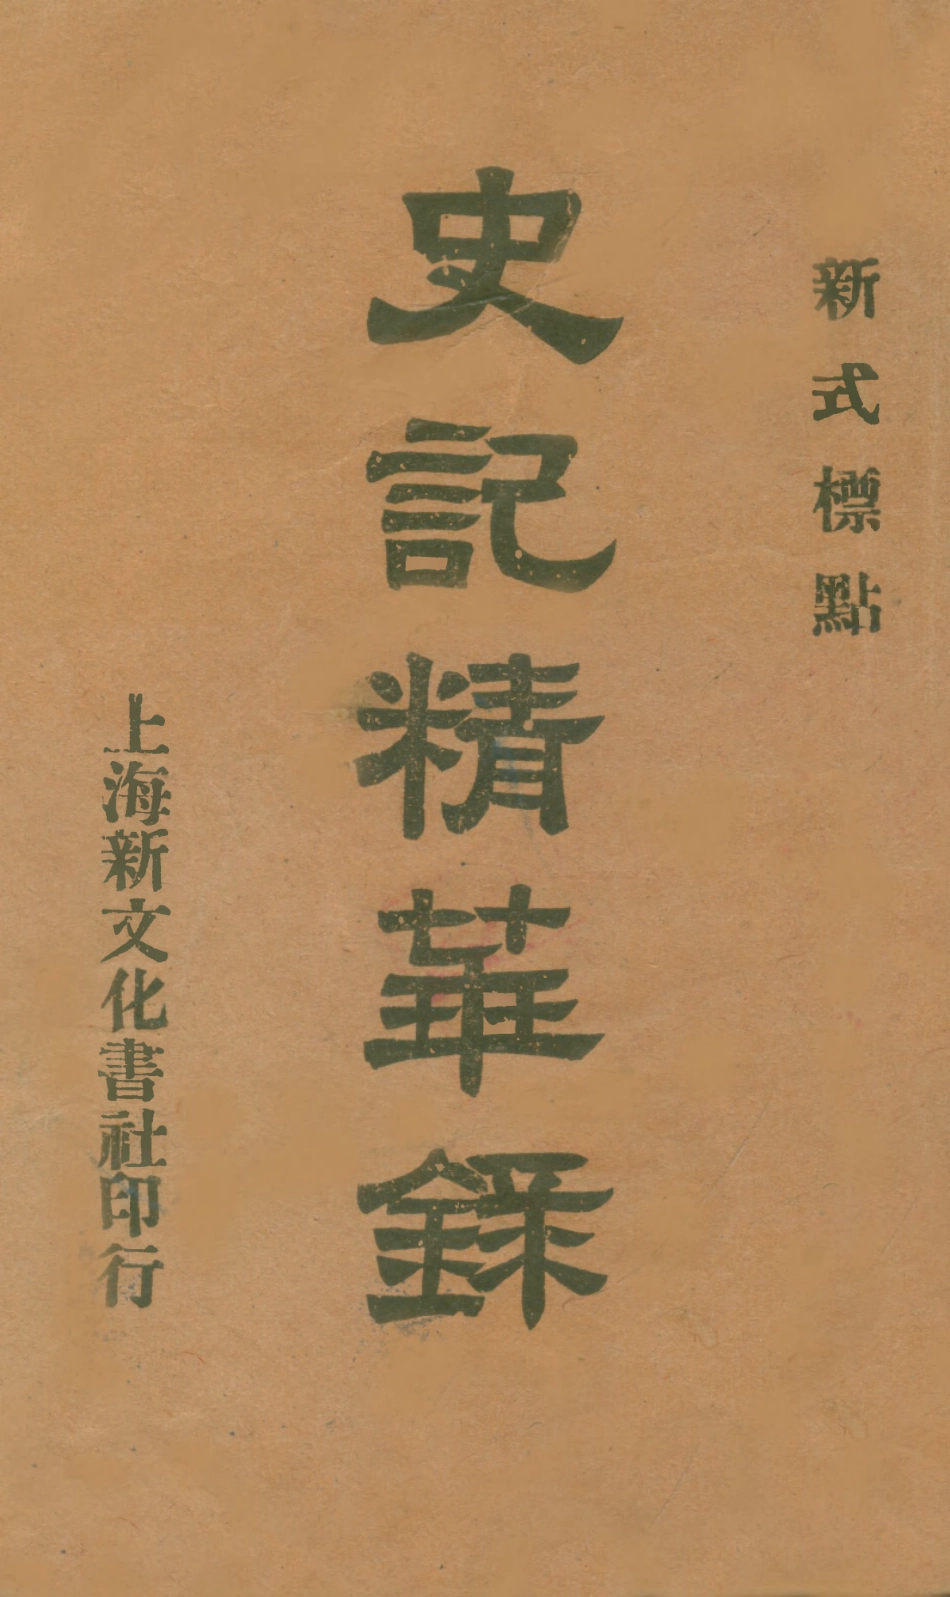 新式標點
史記精華錄
上海新文化書社印行